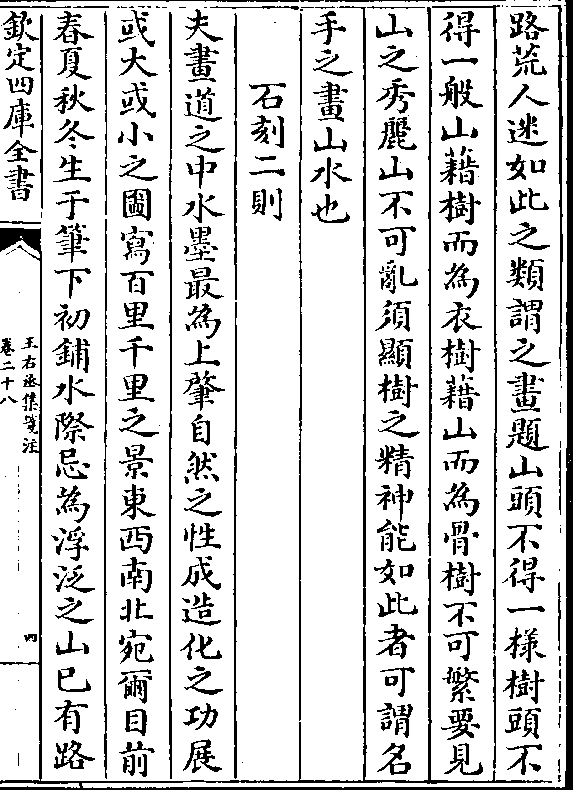 路荒人迷如此之類謂之畫題山頭不得一様樹頭不
得一般山藉樹而為衣樹藉山而為骨樹不可繁要見
山之秀麗山不可亂須顯樹之精神能如此者可謂名
手之畫山水也
石刻二則
夫畫道之中水墨最為上肇自然之性成造化之功展
或大或小之圖寫百里千里之景東西南北宛爾目前
春夏秋冬生于筆下初鋪水際忌為浮泛之山已有路
欽定四庫全書
王右丞集箋注
卷二十八
四